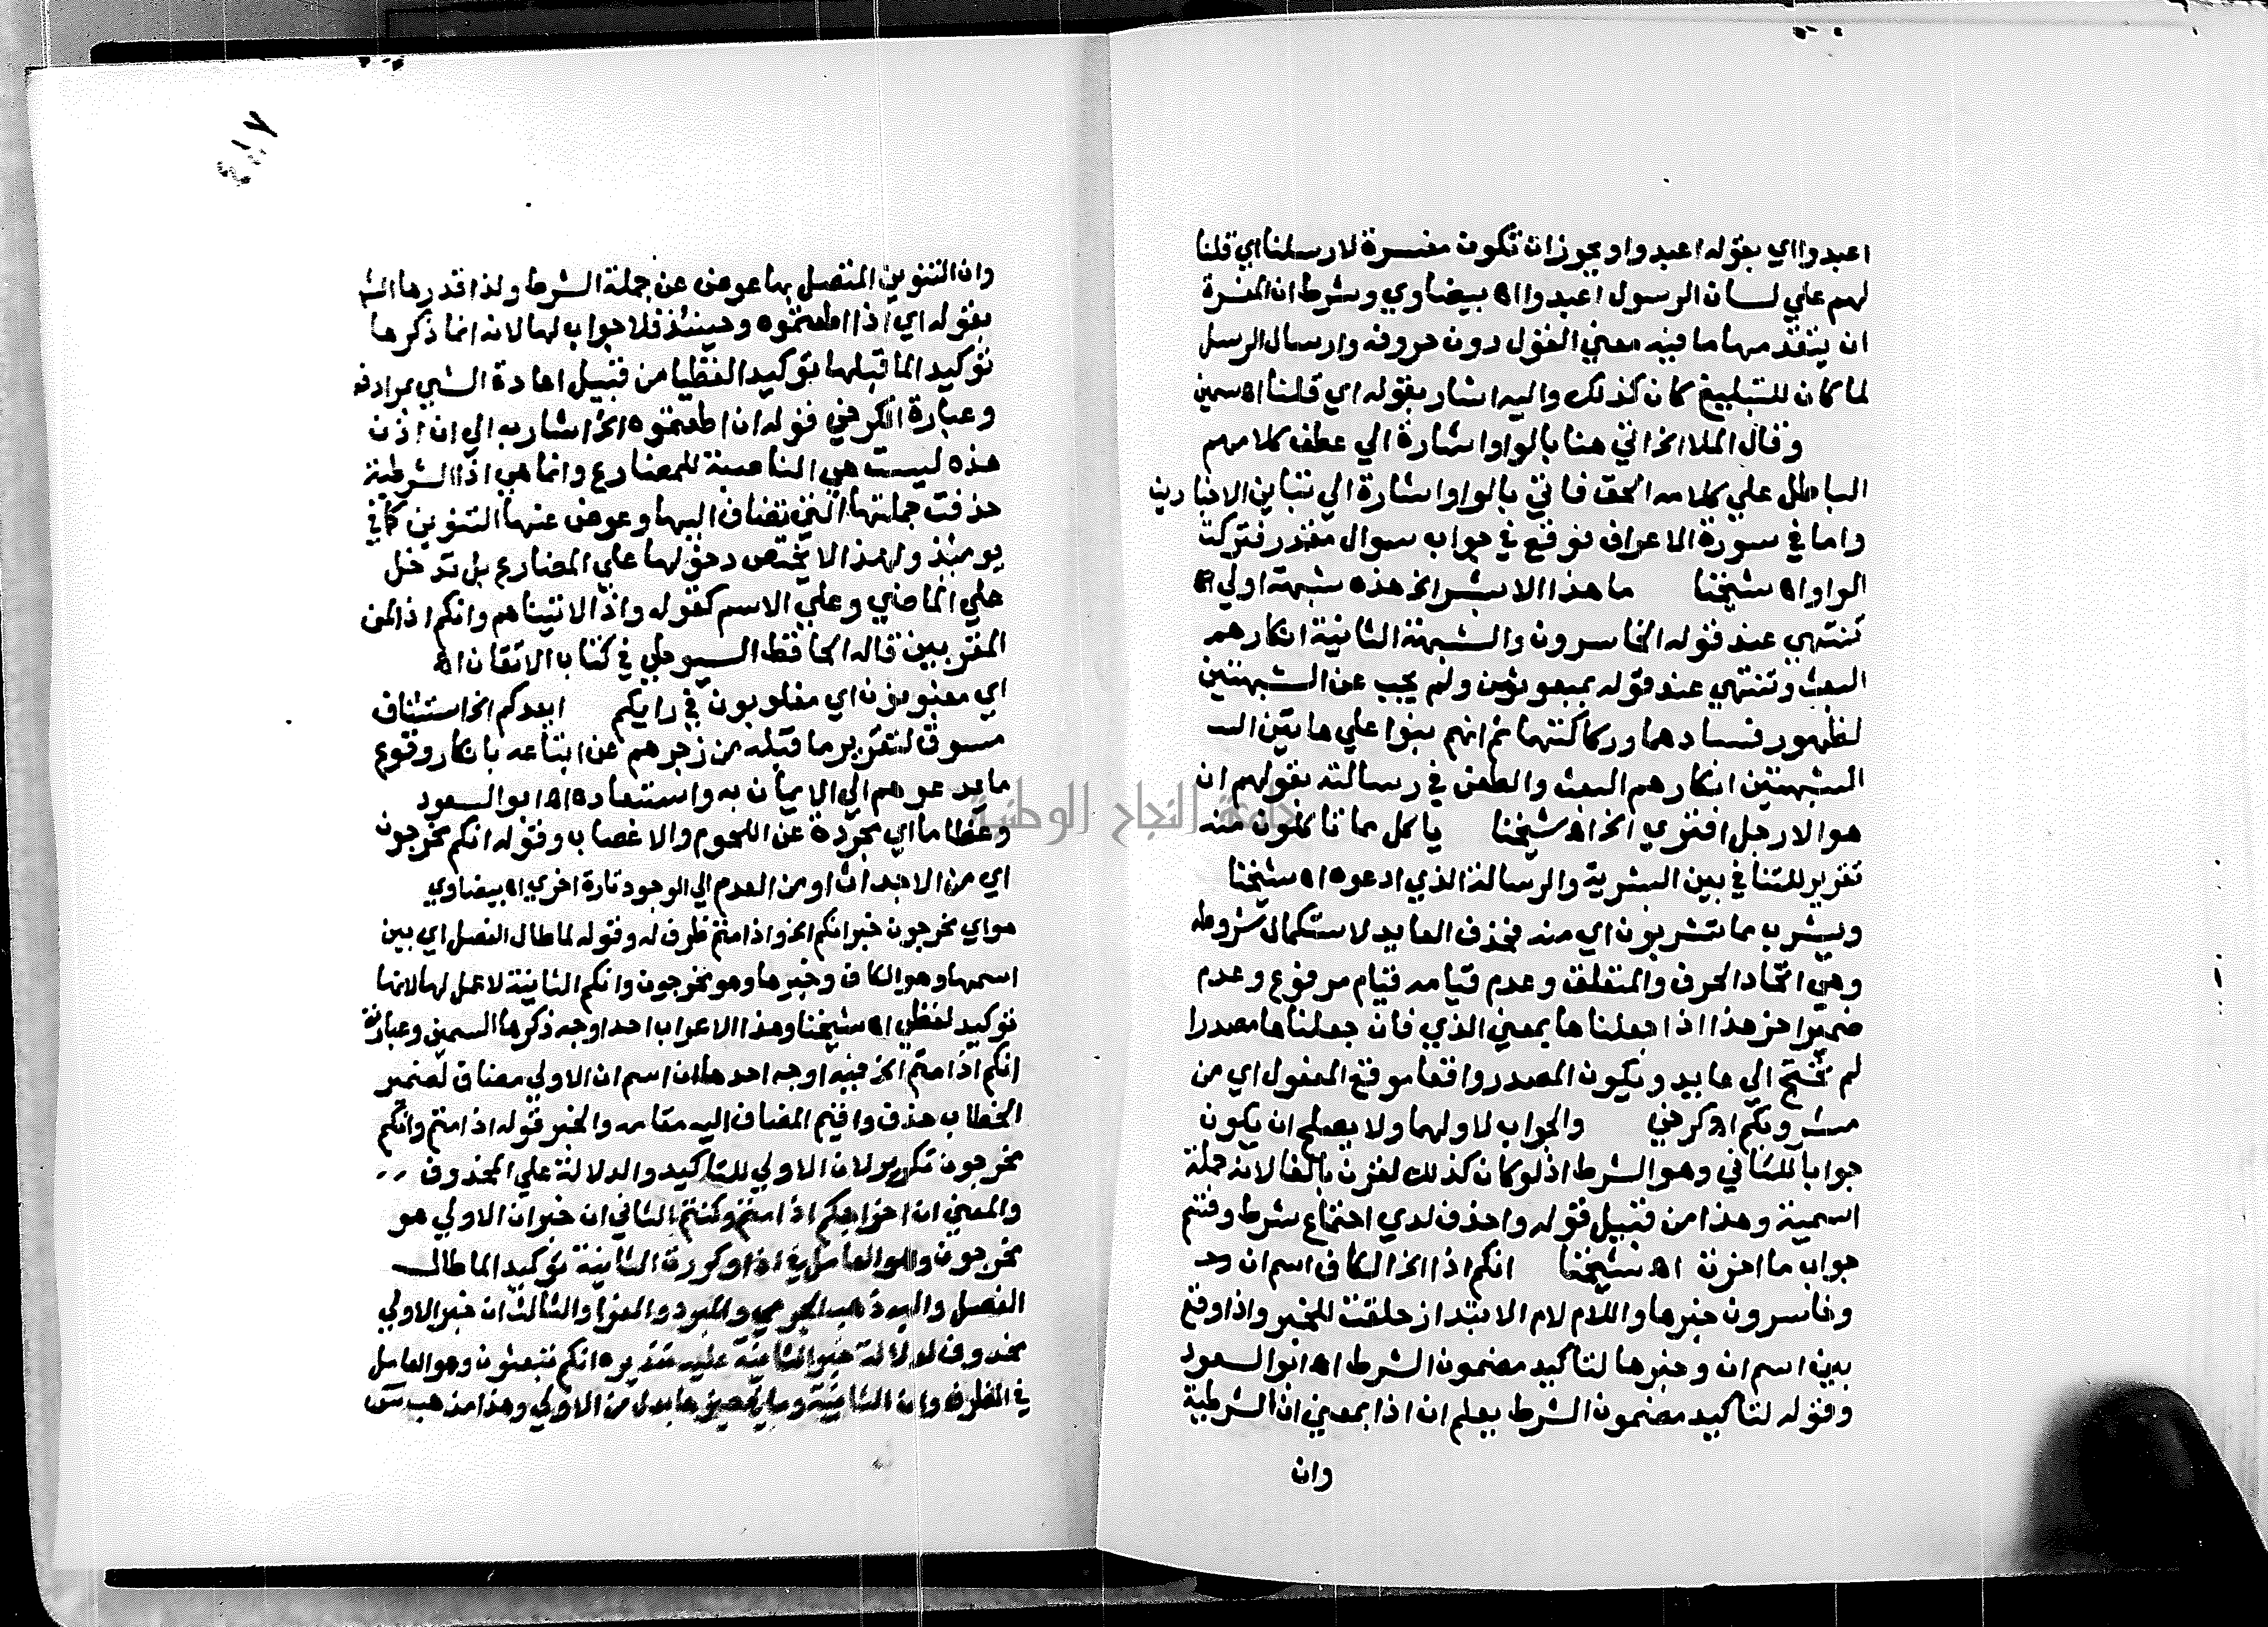 اعبدوا اي بقوله اعبدوا ويجوز ان تكون مفسرة لارسلنا اي قلنا
لهم علي لسان الرسول اعبدوا اه بيضاوي وشرط ان المفسرة
ان يتقدمها ما فيه معني القول دون حروفه وارسال الرسل
لما كان للتبليغ كان كذلك واليه اشار بقوله اي قلنا اه سمين
وقال الملا الخ اتي هنا بالواو اشارة الي عطف كلامهم
الباطل علي كلامه الحق فاتي بالواو اشارة الي تباين الاخبارين
واما في سورة الاعراف فوقع في جواب سوال مقدر فتركت
الواو اه شيخنا ما هذا الا بشر الخ هذه شبهة اولي اه
تنتهي عند قوله الخاسرون والشبهة الثانية انكارهم
البعث وتنتهي عند قوله بمبعوثين ولم يجب عن الشبهتين
لظهور فسادهما وركاكتهما ثم انهم بنوا علي هاتين الـ
الشبهتين انكارهم البعث والطعن في رسالته بقولهم ان
هو الا رجل افتري الخ اه شيخنا ياكل مما تاكلون منه
تقرير للتنافي بين البشرية والرسالة الذي ادعوه اه شيخنا
ويشرب مما تشربون اي منه فحذف العايد لاستكمال شروطه
وهي اتحاد الحرف والمتعلق وعدم قيامه قيام مرفوع وعدم
ضمير اخر هذا اذا جعلناها بمعني الذي فان جعلناها مصدرا
لم نحتج الي عايد ويكون المصدر واقعا موقع المفعول اي من
مشروبكم اه كرخي والجواب لاولهما ولا يصلح ان يكون
جوابا للثاني وهو الشرط اذ لو كان كذلك لقرن بالفا لانه جملة
اسمية وهذا من قبيل قوله واحذف لدي اجتماع شرط وقسم
جواب ما اخرت اه شيخنا انكم اذا الخ الكاف اسم ان
وخاسرون خبرها واللام لام الابتدا زحلقت للخبر واذا وقع
بين اسم ان وخبرها لتاكيد مضمون الشرط اه ابو السعود
وقوله لتاكيد مضمون الشرط يعلم ان اذا بمعني ان الشرطية
وان
وان التنوين المتصل بها عوض عن جملة الشرط ولذا قدرها الش
بقوله اي اذا اطعتموه وحينئذ فلا جواب لها لانه انما ذكرها
توكيدا لما قبلها توكيدا لفظيا من قبيل اعادة الشي بمرادفه
وعبارة الكرخي قوله ان اطعتموه الخ اشار به الي ان اذن
هذه ليست هي الناصبة للمضارع وانما هي اذا الشرطية
حذفت جملتها التي تضاف اليها وعوض عنها التنوين كما في
يومئذ ولهذا لا يختص دخولها علي المضارع بل تدخل
علي الماضي وعلي الاسم كقوله واذا لاتيناهم وانكم اذا لمن
المقربين قاله الحافظ السيوطي في كتاب الاتقان اه
اي مغبونون اي مغلوبون في رايكم ايعدكم الخ استئناف
مسوق لتقرير ما قبله من زجرهم عن اتباعه بانكار وقوع
ما يدعوهم الي الايمان به واستبعاده اه ابو السعود
وعظاما اي مجردة عن اللحوم والاعصاب وقوله انكم مخرجون
اي من الاجداث او من العدم الي الوجود تارة اخري اه بيضاوي
هو اي مخرجون خبر انكم الخ واذا متم ظرف له وقوله لما طال الفصل اي بين
اسمها وهو الكاف وخبرها وهو مخرجون وانكم الثانية لا عمل لها لانها
توكيد لفظي اه شيخنا وهذا الاعراب احد اوجه ذكرها السمين وعبارته
انكم اذا متم الخ فيه اوجه احدها ان اسم ان الاولي مضاف لضمير
الخطاب حذف واقيم المضاف اليه مقامه والخبر قوله اذا متم وانكم
مخرجون تكرير لان الاولي للتاكيد والدلالة علي المحذوف
والمعني ان اخراجكم اذا متم وكنتم الثاني ان خبر ان الاولي هو
مخرجون وهو العامل في اذا وكررت الثانية توكيدا لما طال
الفصل واليه ذهب الجرمي والمبرد والفرا والثالث ان خبر الاولي
محذوف لدلالة خبر الثانية عليه تقديره انكم تبعثون وهو العامل
في الظرف وان الثانية وما في حيزها بدل من الاولي وهذا مذهب س
جامعة النجاح الوطنية